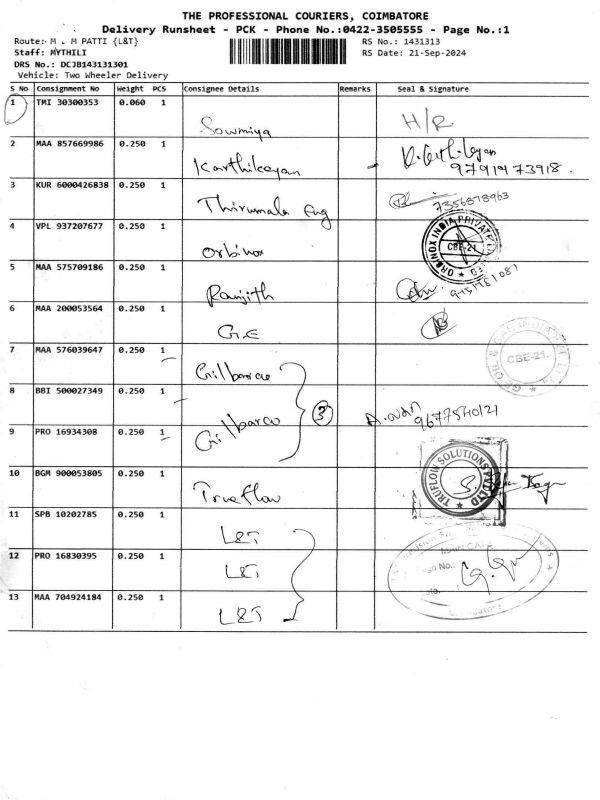 THE PROFESSIONAL COURIERS, COIMBATORE
Delivery Runsheet - PCK - Phone No.:0422-3505555 - Page No.:1
Route:- M . M PATTI {L&T} RS No.: 1431313
Staff: MYTHILI RS Date: 21-Sep-2024
DRS No.: DCJB143131301
Vehicle: Two Wheeler Delivery
S No Consignment No Weight PCS Consignee Details Remarks Seal & Signature
1 TMI 30300353 0.060 1
Sowmiya H/R
2 MAA 857669986 0.250 1
Karthikeyan 9791473918.
3 KUR 6000426838 0.250 1
Thirumala Eng 7356878963
4 VPL 937207677 0.250 1
Orbinox ORBINOX INDIA PRIVATE LIMITED CBE-21
5 MAA 575709186 0.250 1
Ranjith
6 MAA 200053564 0.250 1
G.E
7 MAA 576039647 0.250 1 CBE-21.
Gilbarco
8 BBI 500027349 0.250 1
Gilbarco 3 9677540121
9 PRO 16934308 0.250 1
10 BGM 900053805 0.250 1
Trueflow TRUFLOW SOLUTIONS PVT LTD
11 SPB 10202785 0.250 1
L&T
12 PRO 16830395 0.250 1
L&T
13 MAA 704924184 0.250 1
L&T